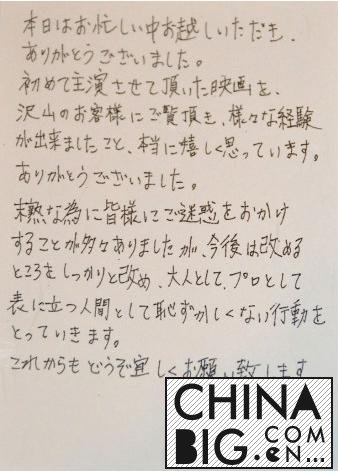 本日はお忙しい中お越しいただき、
ありがとうございました。
初めて主演させて頂いた映画を、
沢山のお客様にご覧頂き、様々な経験
が出来ましたこと、本当に嬉しく思っています。
ありがとうございました。
未熟な為に皆様にご迷惑をおかけ
することが多々ありましたが、今後は改める
ところをしっかりと改め、大人として、プロとして
表に立つ人間として恥ずかしくない行動を
とっていきます。
これからもどうぞ宜しくお願い致します
CHINA
BIG.COM
.cn...